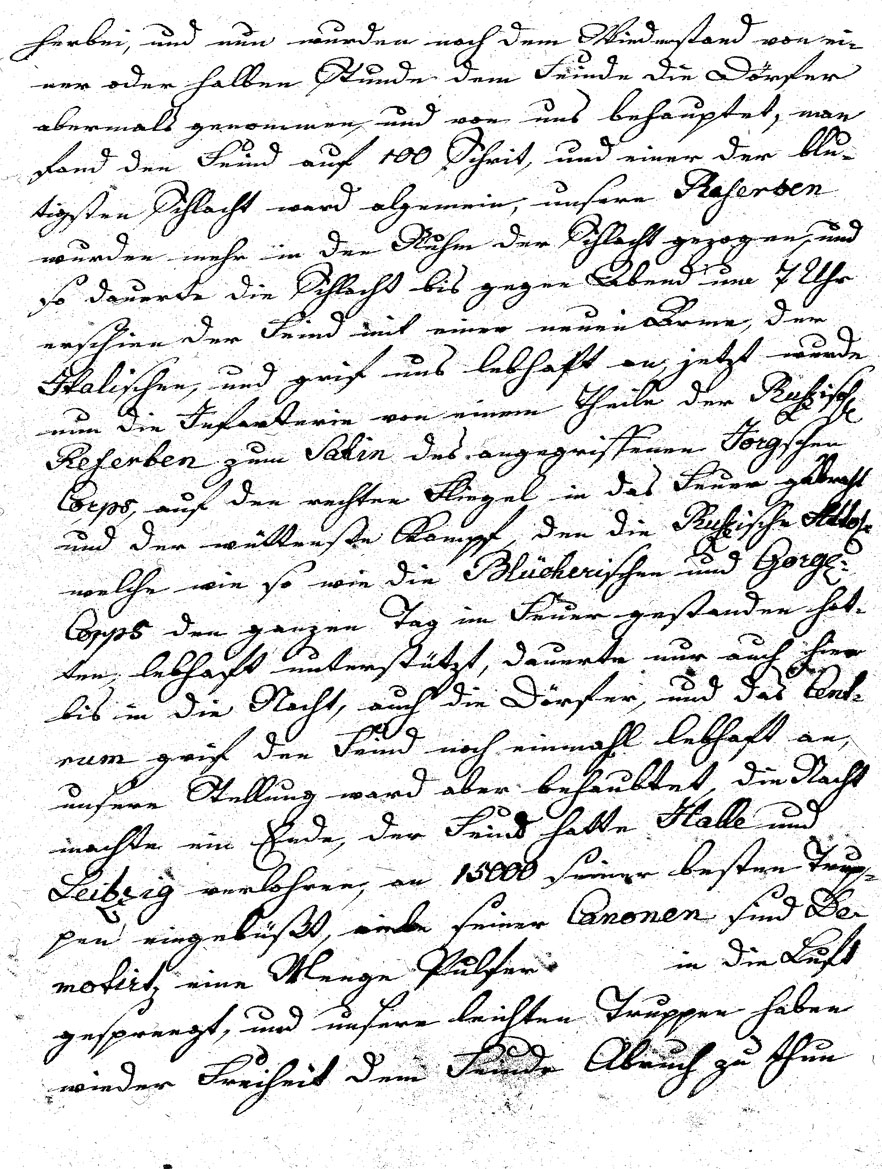 herbei, und nun wurden nach dem Wiederstand von ei-
ner oder halben Stunde dem Feinde die Dörfer
abermals genommen, und von uns behauptet, man
fand den Feind auf 100 Schrit, und einer der blu-
tigsten Schlacht ward algemein, unsere Reserben
wurden mehr in den Ruhm der Schlacht gezogen, und
so dauerte die Schlacht bis gegen Abend um 7 Uhr
erschien der Feind mit einer neuen Arme, der
Italischen, und grif uns lebhaft an, jetzt wurde
nun die Infanterie von einem Theile der Rußisch
Reserben zum des angegriffenen Jorgschen
Corps, auf den rechten Fliegel in das Feuer gebracht
und der wüttenste Kampf, den die Rußische
welche wie so wie die Blücherischen und Gorgs:
Corps den ganzen Tag im Feuer gestanden hat-
ten, lebhaft unterstützt, dauerte nur auch hier
bis in die Nacht, auch die Dörfer, und das Cent-
rum grif den Feind noch einmahl lebhaft an,
unsere Stellung ward aber behaubtet, die Nacht
machte ein Ende, der Feind hatte Halle und
Leibzig verlohren, an 15000 seiner besten Trup-
pen eingebüßt, viele seiner Canonen sind De-
motirt, eine Menge Pulfer in die Luft
gesprengt, und unsere leichten Truppen haben
wieder Freiheit dem Feinde Abruch zu thun